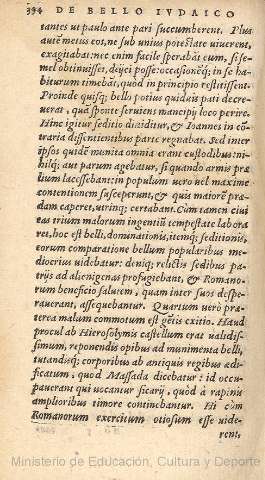 394 DE BELLO IVDAICO
tantes ut paulo ante pari succumberent. Plus
autē metus eos, ne sub unius potestate uiuerent,
exagitabat: nec enim facile sperabāt eum, si se-
mel obtinuisset, deijci posse: occasionēq; in se ha
biturum timebāt, quod in principio restitissent.
Proinde quisq; bello potius quiduis pati decre-
uerat, quā sponte seruiens mancipij loco perire.
Hinc igitur seditio diuiditur, & Ioannes in cō-
traria dissentientibus parte regnabat. Sed inter
ipsos quidē munita omnia erant custodibus: ni-
hilq; aut parum agebatur, si quando armis præ
lium lacessebant: in populum uero uel maxime
contentionem susceperunt, & quis maiorē præ-
dam caperet, utrinq; certabant. Cūm tamen ciui
tas trium malorum ingentiū tempestate labora
ret, hoc est belli, dominationis, itemq; seditionis,
eorum comparatione bellum popularibus me-
diocrius uidebatur: deniq; relictis sedibus pa-
trijs ad alienigenas profugiebant, & Romano-
rum beneficio salutem, quam inter suos despe-
rauerant, assequebantur. Quartum uerò præ-
terea malum commotum est gētis exitio. Haud
procul ab Hierosolymis castellum erat ualidis-
simum, reponendis opibus ad munimenta belli,
tutandisq; corporibus ab antiquis regibus ædi-
ficatum, quod Massada dicebatur: id occu-
pauerant qui uocantur sicarij, quòd à rapinis
amplioribus timore continebantur. Hi cùm
Romanorum exercitum otiosum esse uide-
rent,
Ministerio de Educación, Cultura y Deporte